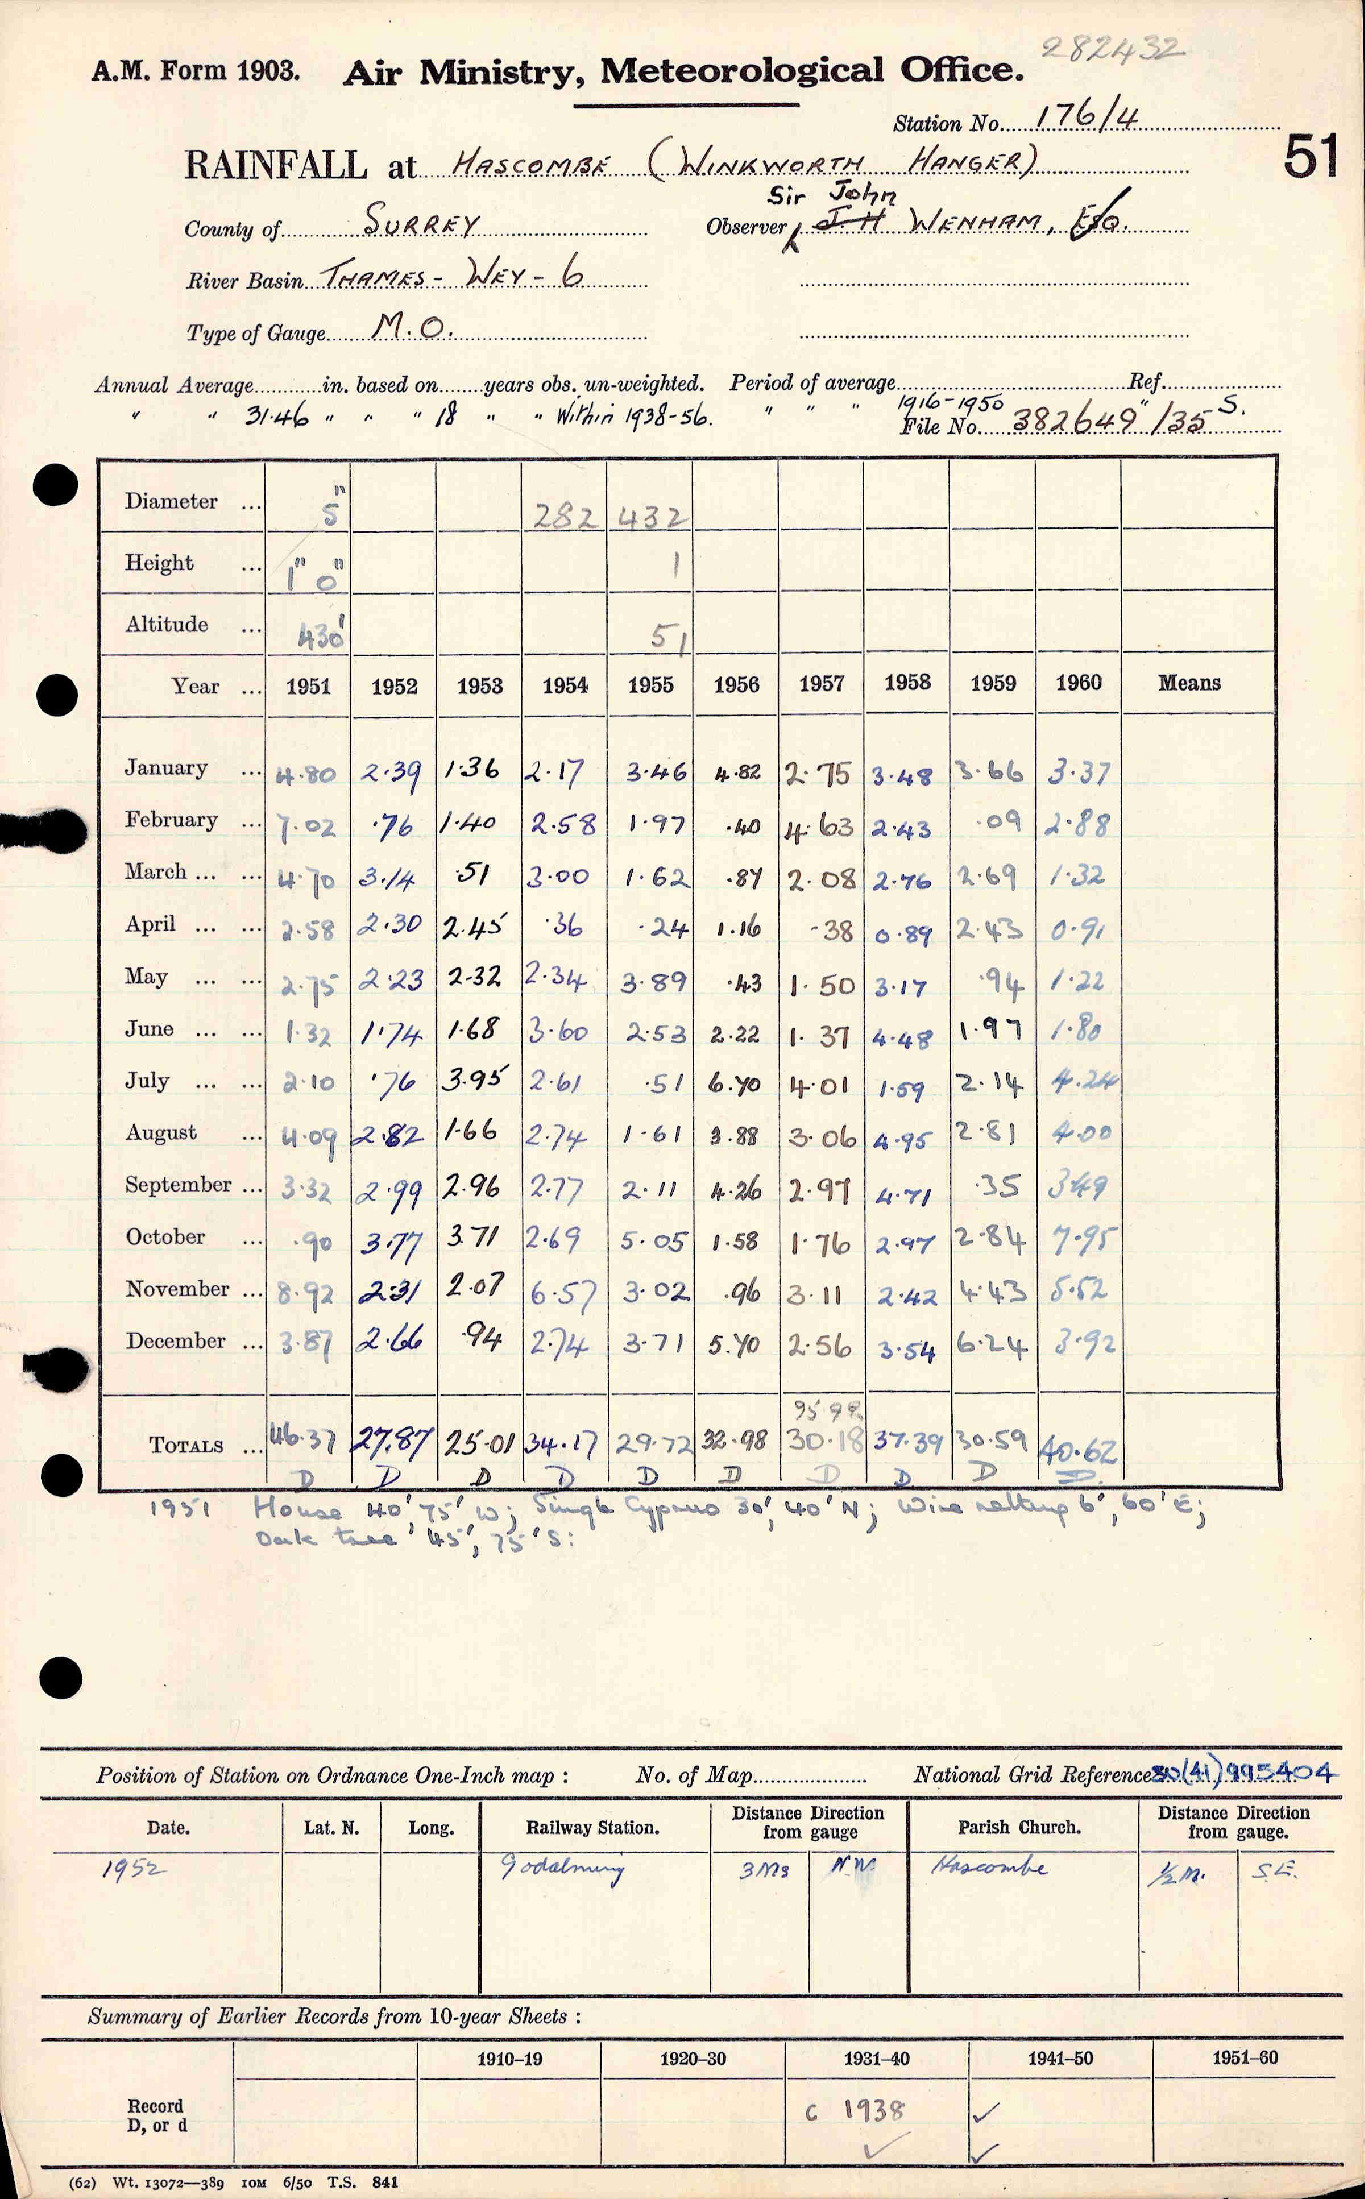 282432
A.M. Form 1903. Air Ministry, Meteorological Office.
Station No. 176/4
51
RAINFALL at HASCOMBE (WINKWORTH HANGER)
Sir John
County of SURREY Observer J H WENHAM, ESQ.
River Basin THAMES - WEY - 6
Type of Gauge M.O.
Annual Average in. based on years obs. un-weighted. Period of average Ref.
" " 31.46 " " " 18 " " Within 1938-56. " " " 1916-1950 " S.
File No. 382649/35
Diameter ... 5" 282 432
Height ... 1" 0" 1
Altitude ... 430' 51
Year ... 1951 1952 1953 1954 1955 1956 1957 1958 1959 1960 Means
January ... 4.80 2.39 1.36 2.17 3.46 4.82 2.75 3.48 3.66 3.37
February ... 7.02 .76 1.40 2.58 1.97 .40 4.63 2.43 .09 2.88
March ... ... 4.70 3.14 .51 3.00 1.62 .87 2.08 2.76 2.69 1.32
April ... ... 2.58 2.30 2.45 .36 .24 1.16 .38 0.89 2.43 0.91
May ... ... 2.75 2.23 2.32 2.34 3.89 .43 1.50 3.17 .94 1.22
June ... ... 1.32 1.74 1.68 3.60 2.53 2.22 1.37 4.48 1.97 1.80
July ... ... 2.10 .76 3.95 2.61 .51 6.70 4.01 1.59 2.14 4.24
August ... 4.09 2.82 1.66 2.74 1.61 3.88 3.06 4.95 2.81 4.00
September ... 3.32 2.99 2.96 2.77 2.11 4.26 2.97 4.71 .35 3.49
October ... .90 3.77 3.71 2.69 5.05 1.58 1.76 2.97 2.84 7.95
November ... 8.92 2.31 2.07 6.57 3.02 .96 3.11 2.42 4.43 5.52
December ... 3.87 2.66 .94 2.74 3.71 5.70 2.56 3.54 6.24 3.92
TOTALS ... 46.37 27.87 25.01 34.17 29.72 32.98 30.18 37.39 30.59 40.62
D D D D D D D D D D
1951 House 40', 75', W; Single Cyprus 30', 40' N; Wire netting 6', 60' E;
Oak tree 45', 75' S:
Position of Station on Ordnance One-Inch map : No. of Map National Grid Reference 30(41)995404
Date. Lat. N. Long. Railway Station. Distance Direction from gauge Parish Church. Distance Direction from gauge.
1952 Godalming 3 Mls N.W. Hascombe ½ M. S.E.
Summary of Earlier Records from 10-year Sheets :
1910–19 1920–30 1931–40 1941–50 1951–60
Record D, or d c 1938 ✓
✓ ✓
(62) Wt. 13072—389 10M 6/50 T.S. 841